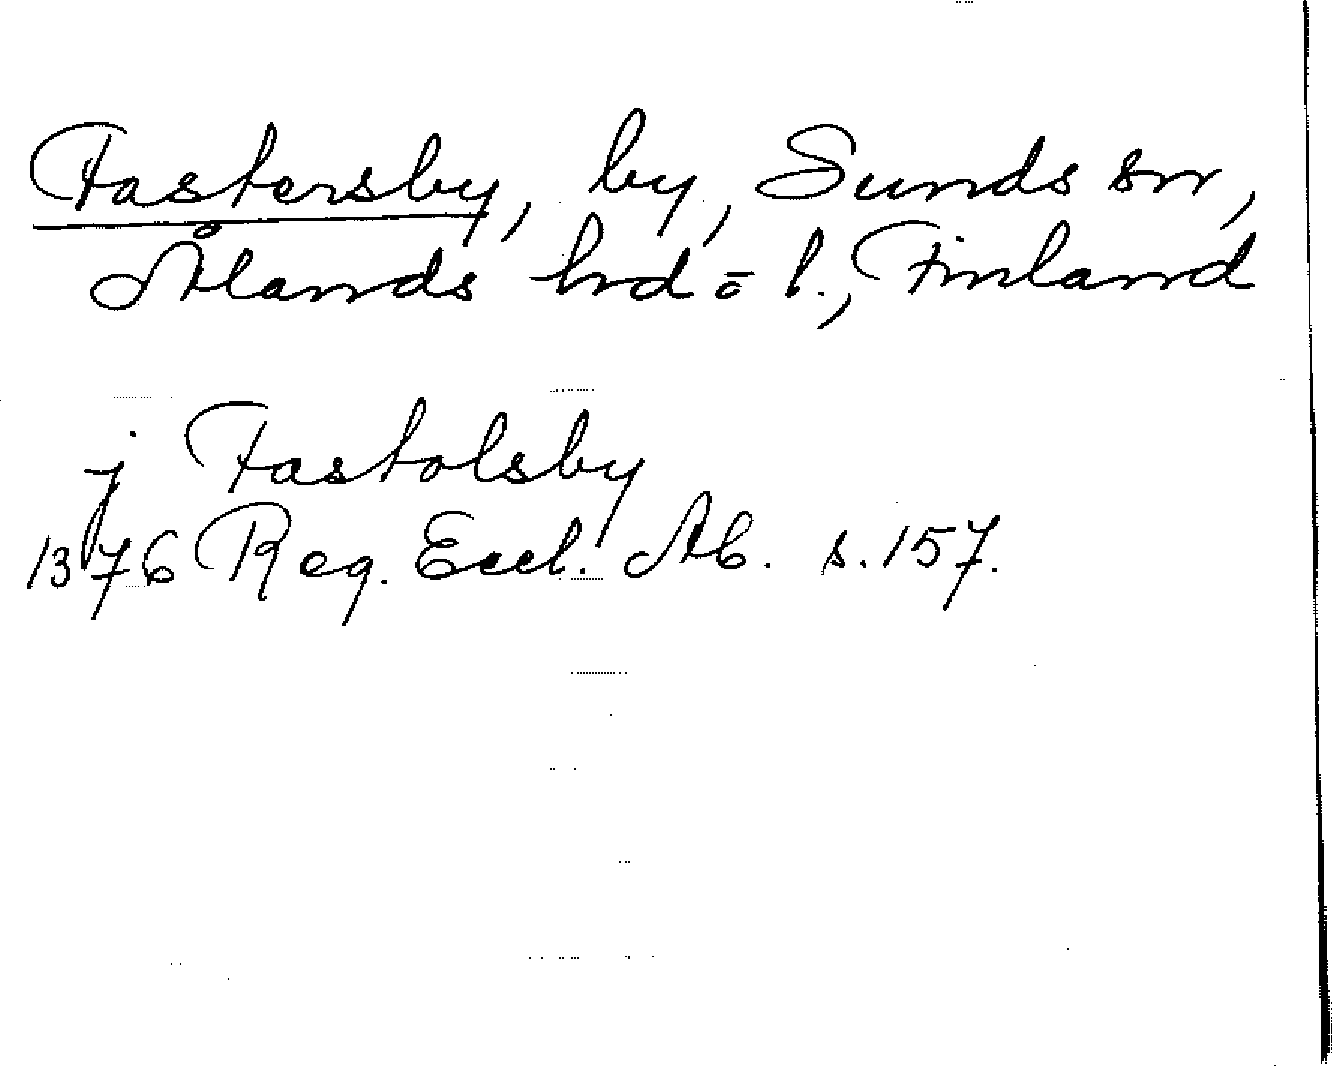 Fastersby, by, Sunds sn,
Ålands hd o l., Finland
j Fastolsby
1376 Reg. Eccl. Ab. s. 157.